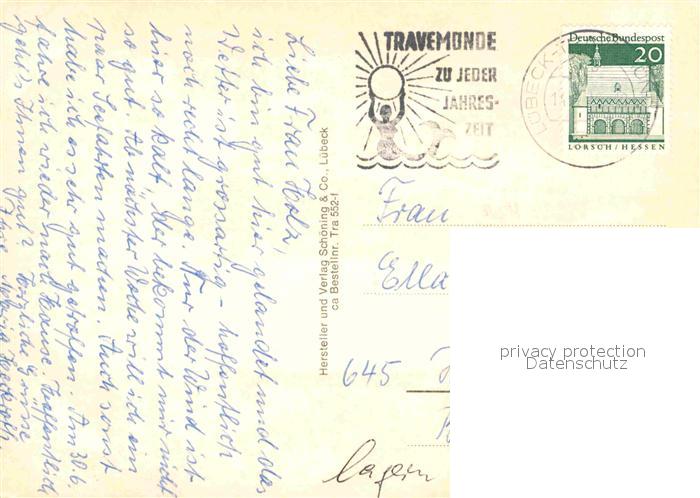 Liebe Frau Holz,
ich bin gut hier gelandet und das
Wetter ist grossartig - hoffentlich
noch recht lange. Nur der Wind ist
hier so kalt, der bekommt mir nicht
so gut. Ab nächster Woche will ich ein
paar Seefahrten machen. Auch sonst
habe ich es sehr gut getroffen. Am 30.6.
fahre ich wieder nach Hause. Hoffentlich
geht's Ihnen gut? Herzliche Grüsse
Ihre Maria
Hersteller und Verlag Schöning & Co., Lübeck
ca Bestellnr. Tra 552-f
TRAVEMÜNDE
ZU JEDER
JAHRES-
ZEIT
LÜBECK-
Deutsche Bundespost
20
LORSCH/HESSEN
Frau
Ella
645
lagern
privacy protection
Datenschutz